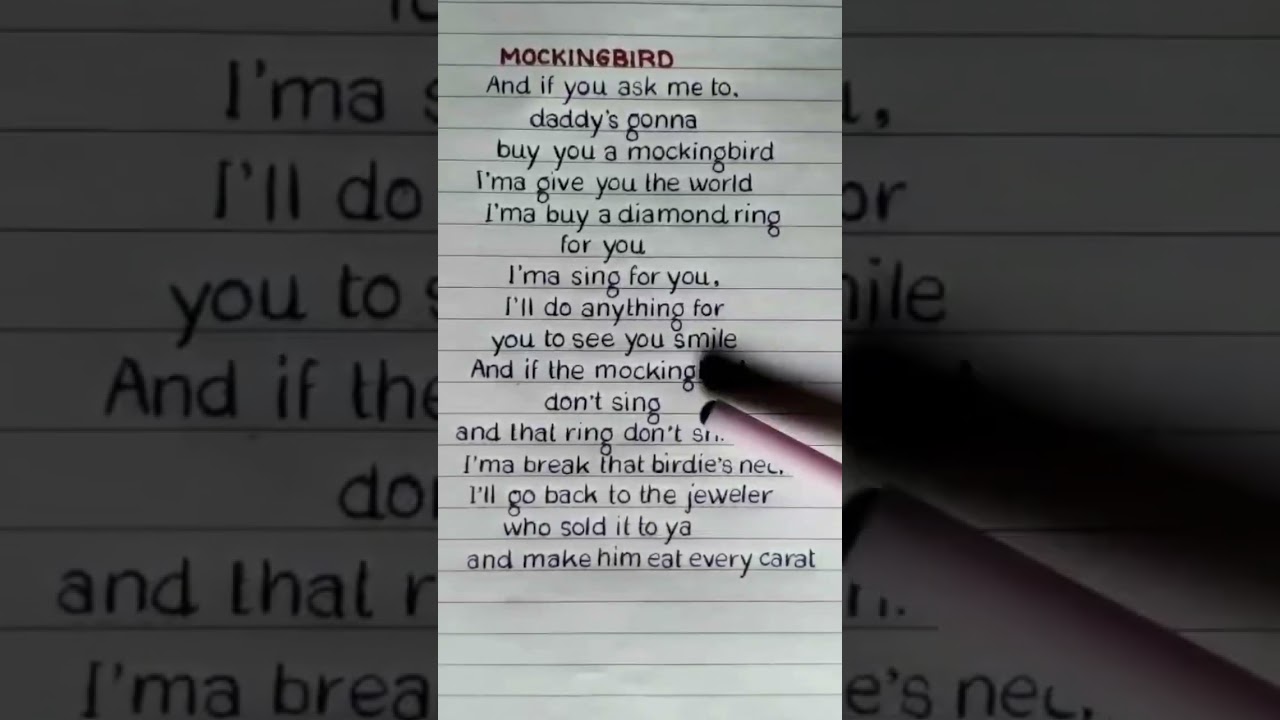 MOCKINGBIRD
And if you ask me to,
daddy's gonna
buy you a mockingbird
I'ma give you the world
I'ma buy a diamond ring
for you
I'ma sing for you,
I'll do anything for
you to see you smile
And if the
don't sing
and that ring don't
I'ma break that birdie's
I'll go back to the jeweler
who sold it to ya
and make him eat every carat